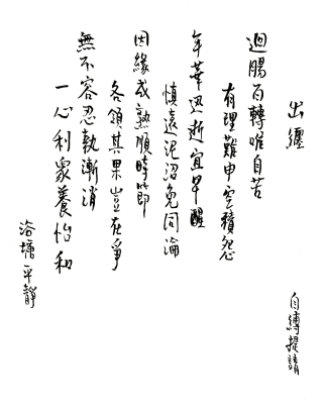 出纏
自縛提請
迴腸百轉唯自苦
有理難申空積怨
年華迅逝宜早醒
慎遠泥沼免同淪
因緣成熟順時節
各領其果豈在爭
無不容忍執漸消
一心利眾養怡和
浴塘平靜